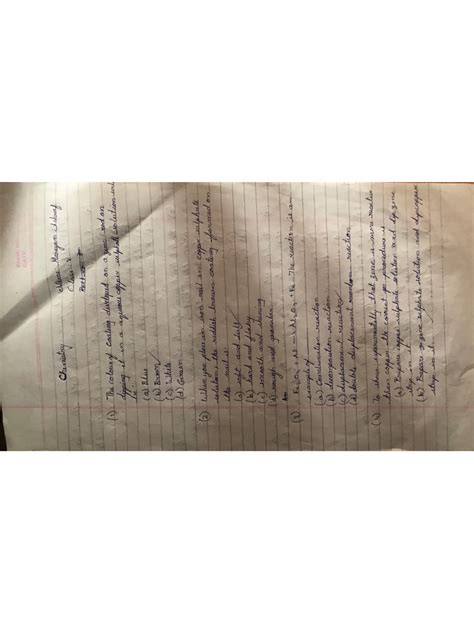 Chemistry
(1). The colour of coating developed on a iron nail on
dipping it in a aqueous copper sulphate solution will
(a) Blue
(b) Brown
(c) White
(d) Green
(2) When you place an iron nail and copper sulphate
solution, the reddish brown coating formed on
the nail is
(a) soft and dull
(b) hard and flaky
(c) smooth and shining
(d) rough and granular
(3) The reaction is an
example of
(a) Combination reaction
(b) decomposition reaction
(c) displacement reaction
(d) double displacement reaction
(4) To show experimentally that zinc is more reactive
than copper the correct procedure is
(a) Prepare copper sulphate solution and dip zinc
strip in it
(b) Prepare zinc sulphate solution and dip copper
strip in it